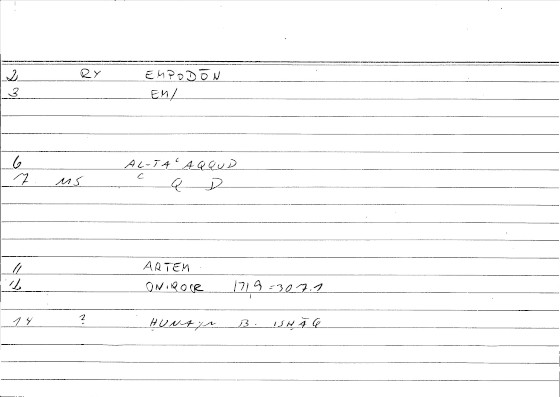 2 RY EMPODŌN
3 EM/
6 AL-TAʿAQQUD
7 MS ʿ Q D
11 ARTEM
12 ONIROCR 171,9 = 307.1
14 ? ḤUNAYN B. ISḤĀQ